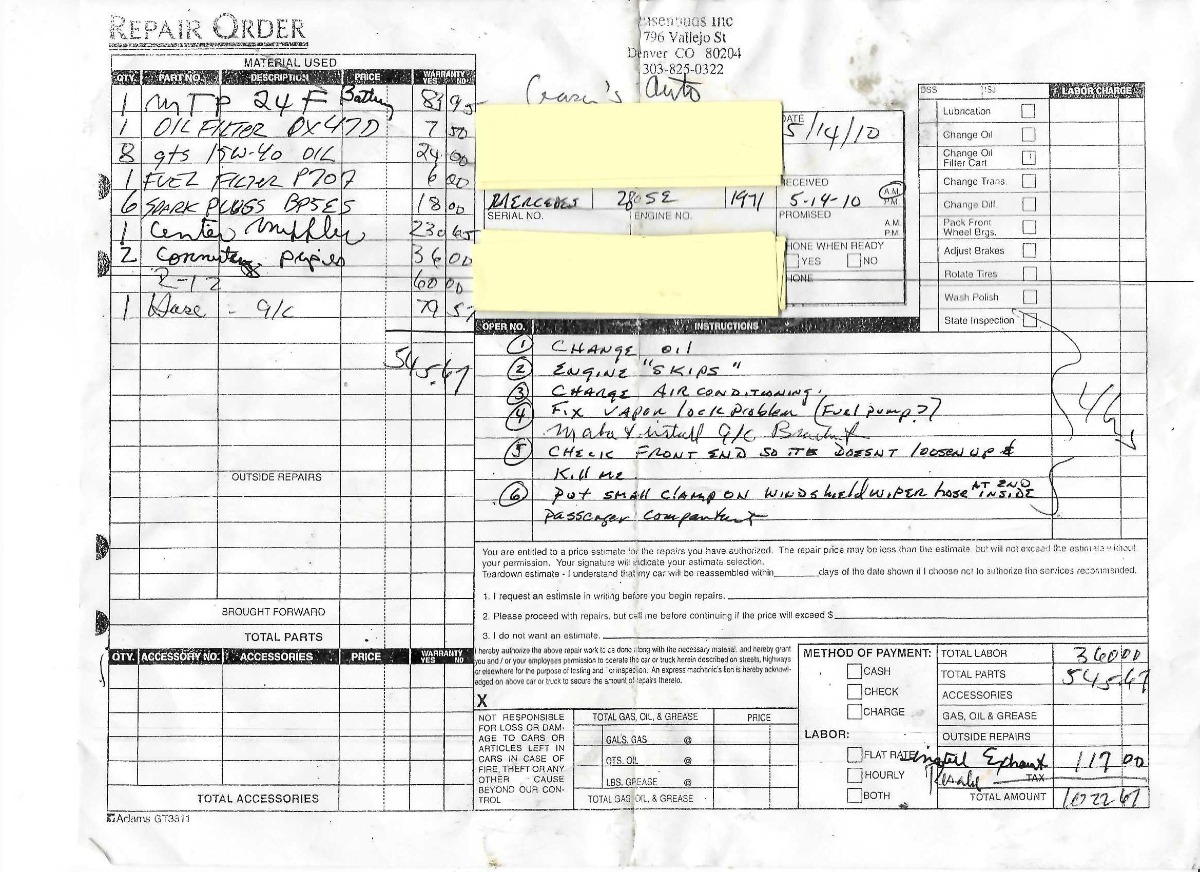 REPAIR ORDER
796 Vallejo St
Denver CO 80204
303-825-0322
Auto
MATERIAL USED
QTY. PART NO. DESCRIPTION PRICE WARRANTY YES NO
1 MTP 24F Battery 89 95
1 OIL FILTER OX47D 7 50
8 qts 15W-40 OIL 24 00
1 FUEL FILTER P707 6 00
6 SPARK PLUGS BP5ES 18 00
1 Center Muffler 230 65
2 pipes 36 00
R-12 60 00
1 Hose - A/C 79 57
545.67
OUTSIDE REPAIRS
BROUGHT FORWARD
TOTAL PARTS
QTY. ACCESSORY NO. ACCESSORIES PRICE WARRANTY YES NO
TOTAL ACCESSORIES
Adams GT3811
DATE
5/14/10
RECEIVED
5-14-10 A.M. P.M.
MERCEDES 280SE 1971
SERIAL NO. ENGINE NO. PROMISED
A.M.
P.M.
PHONE WHEN READY
YES NO
PHONE
LABOR CHARGE
Lubrication
Change Oil
Change Oil Filter Cart
Change Trans.
Change Diff.
Pack Front Wheel Brgs.
Adjust Brakes
Rotate Tires
Wash Polish
State Inspection
OPER NO. INSTRUCTIONS
1 CHANGE OIL
2 ENGINE "SKIPS"
3 CHARGE AIR CONDITIONING.
4 FIX VAPOR lock Problem (Fuel pump?)
Make & install A/C Bracket
5 CHECK FRONT END SO IT DOESNT LOOSEN UP &
Kill me
6 Put SMALL CLAMP ON WINDSHIELD WIPER hose AT END INSIDE
passenger compartment
You are entitled to a price estimate for the repairs you have authorized. The repair price may be less than the estimate, but will not exceed the estimate without
your permission. Your signature will indicate your estimate selection.
Teardown estimate - I understand that my car will be reassembled within ____ days of the date shown if I choose not to authorize the services recommended.
1. I request an estimate in writing before you begin repairs.
2. Please proceed with repairs, but call me before continuing if the price will exceed $
3. I do not want an estimate.
I hereby authorize the above repair work to be done along with the necessary material, and hereby grant
you and / or your employees permission to operate the car or truck herein described on streets, highways
or elsewhere for the purpose of testing and / or inspection. An express mechanic's lien is hereby acknowl-
edged on above car or truck to secure the amount of repairs thereto.
X
NOT RESPONSIBLE
FOR LOSS OR DAM-
AGE TO CARS OR
ARTICLES LEFT IN
CARS IN CASE OF
FIRE, THEFT OR ANY
OTHER CAUSE
BEYOND OUR CON-
TROL
TOTAL GAS, OIL, & GREASE PRICE
GALS. GAS @
QTS. OIL @
LBS. GREASE @
TOTAL GAS, OIL, & GREASE
METHOD OF PAYMENT:
CASH
CHECK
CHARGE
LABOR:
FLAT RATE
HOURLY
BOTH
TOTAL LABOR 360 00
TOTAL PARTS 545.67
ACCESSORIES
GAS, OIL & GREASE
OUTSIDE REPAIRS
install Exhaust 117 00
TAX
TOTAL AMOUNT 1022 67